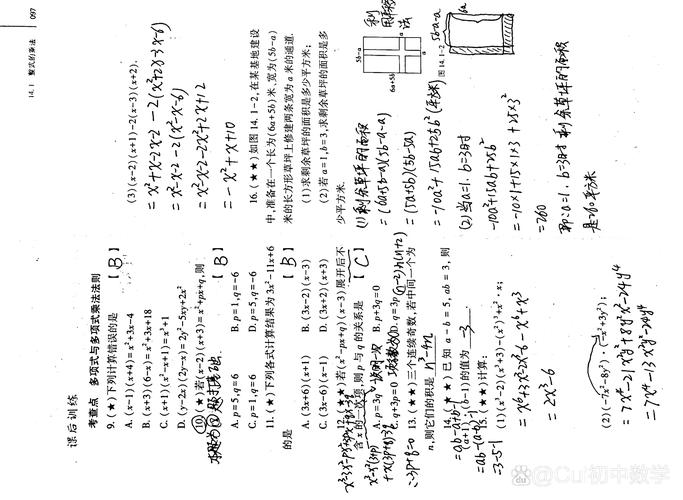 14.1 整式的乘法
097
课后训练
考查点 多项式与多项式乘法法则
9.(★)下列计算错误的是 【B】
A.(x-1)(x+4)=x²+3x-4
B.(x+3)(6-x)=x²+3x+18
C.(x+1)(x²-x+1)=x³+1
D.(y-2x)(2y-x)=2y²-5xy+2x²
10.(★)若(x-2)(x+3)=x²+px+q,则 【B】
A.p=5,q=6
B.p=1,q=-6
C.p=1,q=6
D.p=5,q=-6
11.(★)下列各式计算结果为3x²-11x+6
的是 【B】
A.(3x+6)(x+1)
B.(3x-2)(x-3)
C.(3x-6)(x-1)
D.(3x+2)(x+3)
12.(★★)若(x²-px+q)(x-3)展开后不
含x的一次项,则p与q的关系是 【C】
A.p=3q
B.p+3q=0
C.q+3p=0
D.q=3p
+x(3p+q)
∴3p+q=0
13.(★★)三个连续奇数,若中间一个为
n,则它们的积是
(n-2)n(n+2)
14.(★★)已知a-b=5,ab=3,则
(a+1)(b-1)的值为 -3
=ab-a+b-1
=3-5-1
15.(★★)计算:
(1)(x³-2)(x³+3)-(x²)³+x²·x;
=x⁶+3x³-2x³-6-x⁶+x³
=2x³-6
(2)(-7x²-8y²)·(-x²+3y²);
=7x⁴-21x²y²+8x²y²-24y⁴
=7x⁴-13x²y²-24y⁴
(3)(x-2)(x+1)-2(x-3)(x+2).
=x²+x-2x-2-2(x²+2x-3x-6)
=x²-x-2-2(x²-x-6)
=x²-x-2-2x²+2x+12
=-x²+x+10
16.(★★)如图14.1-2,在某基地建设
中,准备在一个长为(6a+5b)米,宽为(5b-a)
米的长方形草坪上修建两条宽为a米的通道.
(1)求剩余草坪的面积是多少平方米;
(2)若a=1,b=3,求剩余草坪的面积是多
少平方米.
5b-a
6a+5b
a
a
图14.1-2
5b-a-a
6a
(1)剩余草坪的面积
=(6a+5b-a)(5b-a-a)
=-10a²+15ab+25b²(平方米)
(2)当a=1.b=3时
-10a²+15ab+25b²
=-10×1+15×1×3+25×3²
=260
即:a=1.b=3时剩余草坪的面积
是260平方米
@Cur初中数学